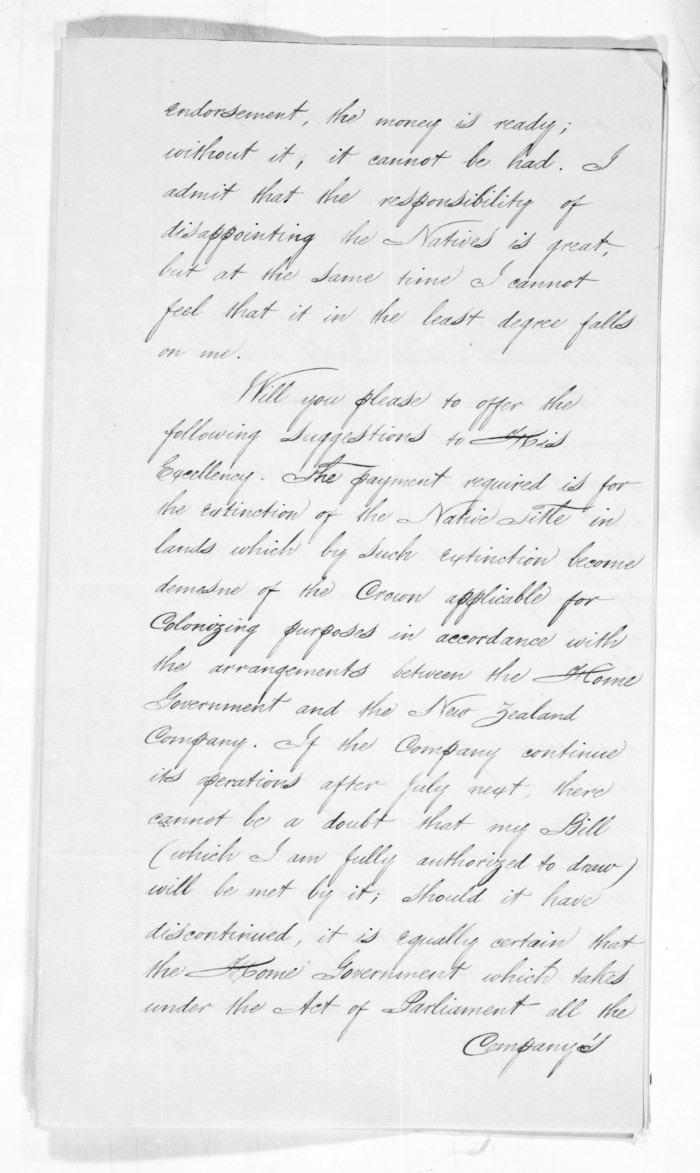 endorsement, the money is ready;
without it, it cannot be had. I
admit that the responsibility of
disappointing the Natives is great,
but at the same time I cannot
feel that it in the least degree falls
on me.
Will you please to offer the
following suggestions to His
Excellency. The payment required is for
the extinction of the Native Title in
lands which by such extinction become
demesne of the Crown applicable for
Colonizing purposes in accordance with
the arrangements between the Home
Government and the New Zealand
Company. If the Company continue
its operations after July next, there
cannot be a doubt that my Bill
(which I am fully authorized to draw)
will be met by it; should it have
discontinued, it is equally certain that
the Home Government which takes
under the Act of Parliament all the
Company's